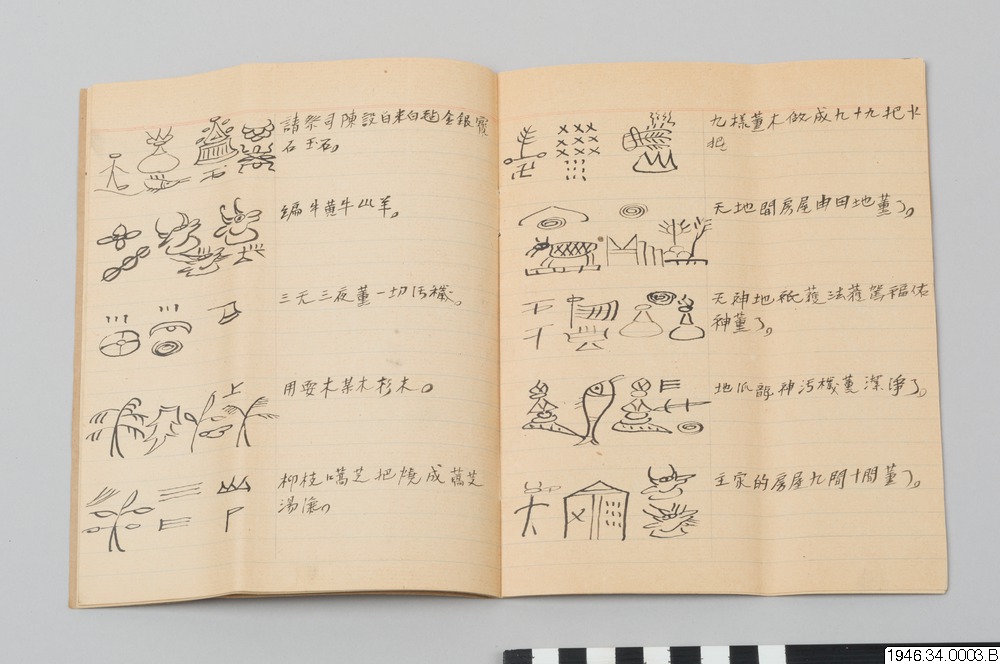 請祭司陳設白米白毡金銀寶
石玉石。
犏牛黄牛山羊。
三天三夜董一切污穢。
用要木某木杉木。
柳枝口蒿芝把燒成蒿芝
湯
九樣董木做成九十九把火
把
天地間房屋由田地董了。
天神地祇
福佑
神董了。
地
神污穢董潔淨了。
主家的房屋九間十間董了。
1946.34.0003.B